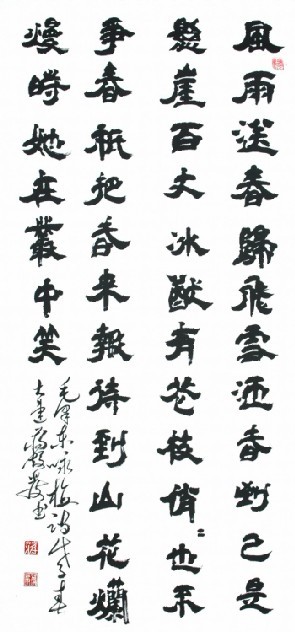 風雨送春歸飛雪迎春到已是
懸崖百丈冰猶有花枝俏〻也不
爭春祇把春來報待到山花爛
漫時她在叢中笑
毛澤東咏梅詞